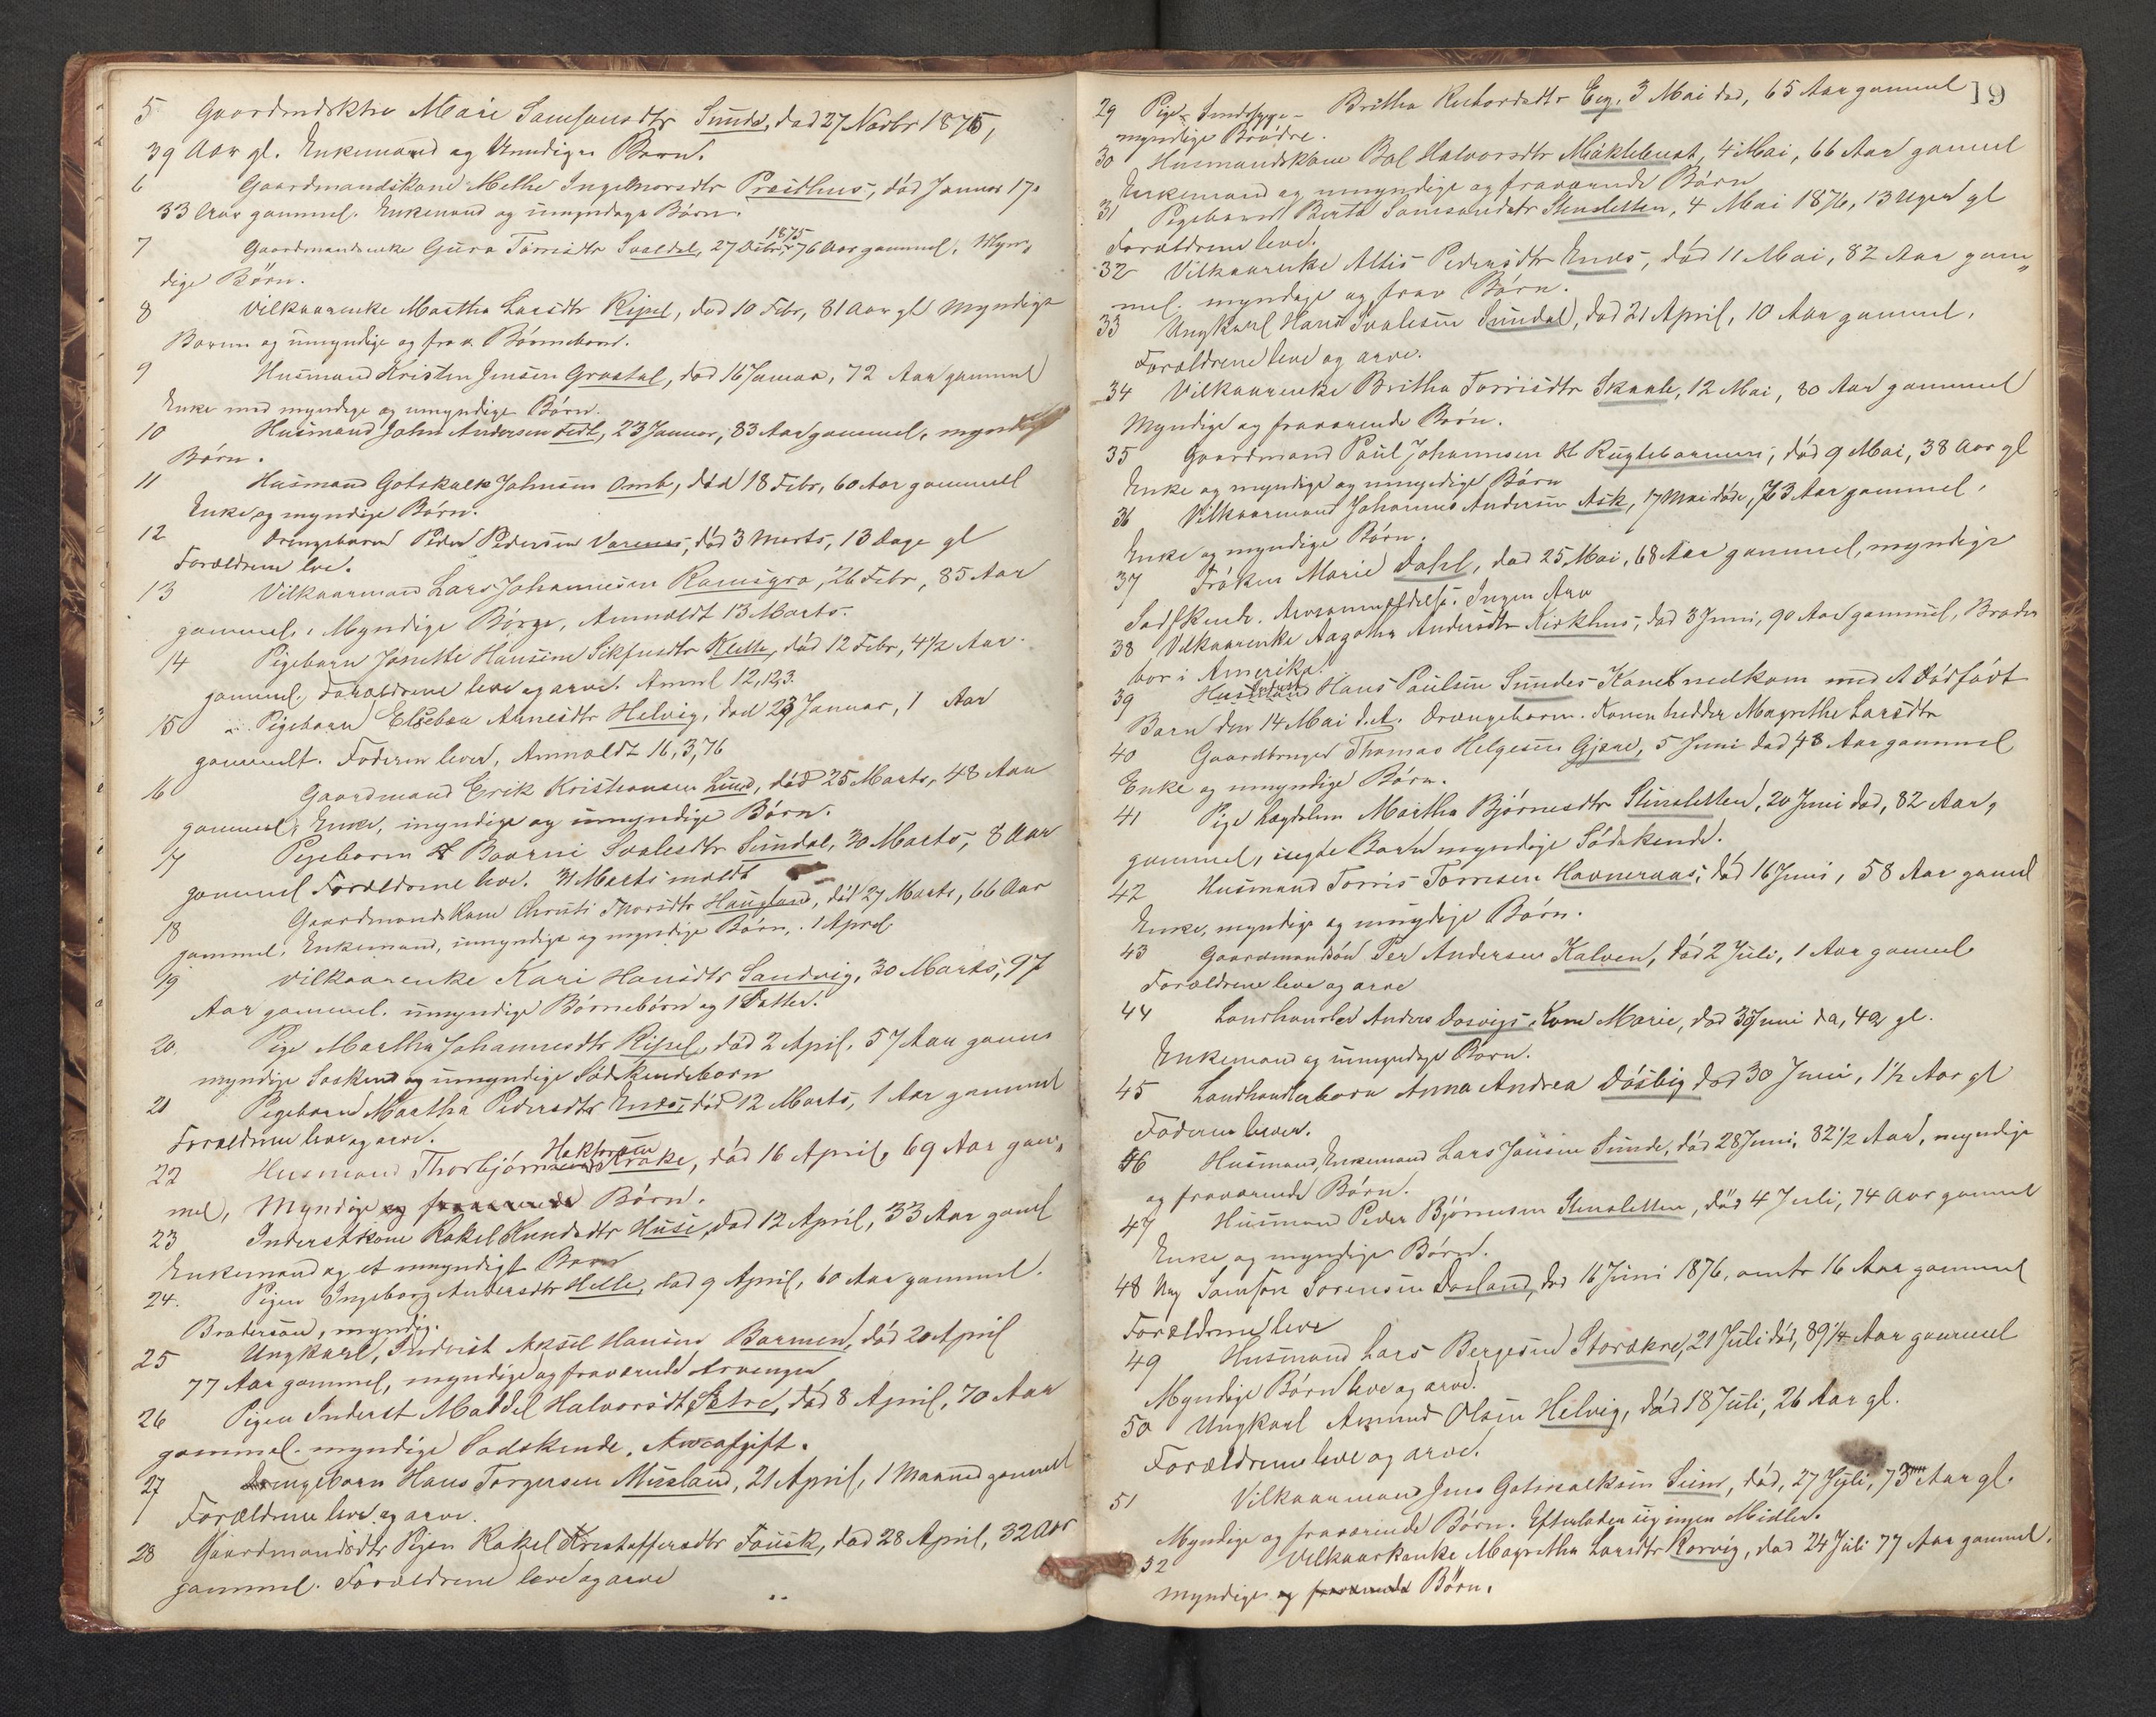 5 Gaardmdskkne Mari Samsonsdtr Sunde, død 27 Novbr 1875,
39 Aar gl. Enkemand og Umndige Børn.
6 Gaardmandskone Methe Ingelmorsdtr Præsthus, død Januar 17.
33 Aar gammel. Enkemand og umyndige Børn.
7 Gaardmandsenke Gura Torrisdtr Svaldal, 27 Octbr 1875, 76 Aar gammel. Myn-
dige Börn.
8 Vilkaarenke Martha Larsdtr Ripel, død 10 Febr, 81 Aar gl Myndige
Børn og umyndige og frav. Börnebørn.
9 Husmand Kristen Jensen Grastal, død 16 Januar, 72 Aar gammel
Enke med myndige og umyndige Börn.
10 Husmand John Andersen Fedt, 23 Januar, 83 Aar gammel, myndige
Børn.
11 Husmand Gotskalk Johnsen Omb, död 18 Febr, 60 Aar gammell
Enke og myndige Børn.
12 Drengebarn Peder Pedersen Varenes, död 3 Marts, 13 Dage gl
Forældrene lve.
13 Vilkaarmand Lars Johannesen Ramsgrø, 26 Febr, 85 Aar
gammel, Myndige Børge, Anmældt 13 Marts.
14 Pigebarn Janette Hansine Sikfusdtr Klette, død 12 Febr, 4 1/2 Aar
gammel, Forældrene leve og arve. Anml 12,12,3.
15 Pigebarn Elsebea Arnesdtr Helvig, død 23 Januar, 1 Aar
gammelt. Faderen lever, Anmældt 16,3,76
16 Gaardmand Erik Kristiansen Lund, död 25 Marts, 48 Aar
gammel, Enke, myndige og umyndige Børn.
17 Pigebarn Baarni Svalesdtr Sundal, 30 Marts, 8 Aar
gammel Forældrene leve. 31 Marts meldt
18 Gaardmandskone Christi Thorsdtr Haugland, död 27 Marts, 66 Aar
gammel, Enkemand, umyndige og myndige Børn, 1 April
19 Vilkaarenke Kari Hansdtr Sandvig, 30 Marts, 97
Aar gammel. umyndige Børnebörn og 1 Datter.
20. Pige Martha Johannesdtr Ripel, död 2 April, 57 Aar gamm
myndige Søskend og umyndige Södskendebørn
21 Pigebarn Martha Pedersdtr Enæs, död 12 Marts, 1 Aar gammel
Forældrene leve og arve.
22 Husmand Thorbjörn Haktorsen Krake, död 16 April, 69 Aar gam-
mel, Myndige og fraværende Børn.
23 Inderstkone Rakel Knudsdtr Husi, død 12 April, 33 Aar gaml
Enkemand og et umyndigt Barn
24. Pigen Ingeborg Andersdtr Helle, død 9 April, 60 Aar gammel.
Brodersøn, myndig.
25 Ungkarl, Inderst Aksel Hansen Barmen, död 20 April
77 Aar gammel, myndige og fraværende Arvinger
26 Pigen Inderst Maddel Halvorsdt Sætre, død 8 April, 70 Aar
gammel. myndige Sødskende. Arveafgift.
27 Drengebarn Hans Torgersen Musland, 21 April, 1 Maaned gammel
Forældrene leve og arve
28 Gaardmandsdtr Pigen Rakel Kristoffersdtr Fousk, død 28 April, 32 Aar
gammel. Forældrene leve og arve
19
29 Pige Sindssyge - Britha Richardsdtr Eeg, 3 Mai död, 65 Aar gammel
myndige Brødre.
30 Husmandskone Bol Halvorsdtr Mäklebust, 4 Mai, 66 Aar gammel
Enkemand og umyndige og fraværende Börn
31 Pigebarn Berta Samsonsdtr Stensletten, 4 Mai 1876, 13 Uger gl
Forældrene leve.
32 Vilkaarenke Altis Pedersdtr Enæs, död 11 Mai, 82 Aar gam-
mel. myndige og frav Børn.
33 Ungkarl Hans Svalesen Sundal, död 21 April, 10 Aar gammel,
Forældrene leve og arve.
34 Vilkaarenke Britha Torrisdtr Skaale, 12 Mai, 80 Aar gammel
Myndige og fraværende Börn.
35 Gaardmand Paul Johannesen Kl Rugtebarmen, död 9 Mai, 38 Aar gl
Enke og myndige og umyndige Börn
36 Vilkaarmand Johannes Andersen Ask, 17 Mai døde, 73 Aar gammel,
Enke og myndige Börn.
37 Fröken Marie Dahl, død 25 Mai, 68 Aar gammel, myndige
Sødskende. Ingen Arv
38 Vilkaarenke Aagotha Andersdtr Kirkhus, død 3 Juni, 90 Aar gammel, Broder
bor i Amerika.
39 Husmand Inderst Hans Paulsen Sundes Kone nedkom med et dödfödt
Barn den 14 Mai d.A. Drengebarn. Konen hedder Magrethe Larsdtr
40 Gaardbruger Thomas Helgesen Gjerde, 5 Juni død 48 Aar gammel
Enke og umyndige Börn.
41 Pige Lægdslem Martha Bjørnesdtr Stensletten, 20 Juni død, 82 Aar
gammel, uegte Barn myndige Södskende.
42 Husmand Torris Torrisen Havneraas, død 16 Juni, 58 Aar gamel
Enke, myndige og umyndige Børn.
43 Gaardmandsön Per Andersen Kalven, död 2 Juli, 1 Aar gammel
Forældrene leve og arve
44 Landhandler Anders Dosvigs Kone Marie, død 30 Juni da, 42 gl.
Enkemand og umyndige Børn.
45 Landhandlerbarn Anna Andrea Dösvig død 30 Juni, 1 1/2 Aar gl
Faderen lever.
46 Husmand, Enkemand Lars Jansen Sunde, död 28 Juni, 82 1/2 Aar, myndige
og fraværende Børn.
47 Husmand Peder Bjørnesen Stensletten, död 4 Juli, 74 Aar gammel
Enke og myndige Børn.
48 Ung Samson Sorensen Dosland, død 16 Juni 1876, omtr 16 Aar gammel
Forældrene leve
49 Husmand Lars Bergesen Storækre, 21 Juli död, 89 1/4 Aar gammel
Myndige Børn leve og arve.
50 Ungkarl Asmund Olsen Helvig, död 18 Juli, 26 Aar gl.
Forældrene leve og arve.
51 Vilkaarmand Jens Gotskalksen Seim, död, 27 Juli, 73 Aar gl.
Myndige og fraværende Børn. Efterlader sig ingen Midler.
52 Vilkaarsenke Magretha Larsdtr Korsvig, død 24 Juli 77 Aar gammel.
myndige og fraværende Børn.